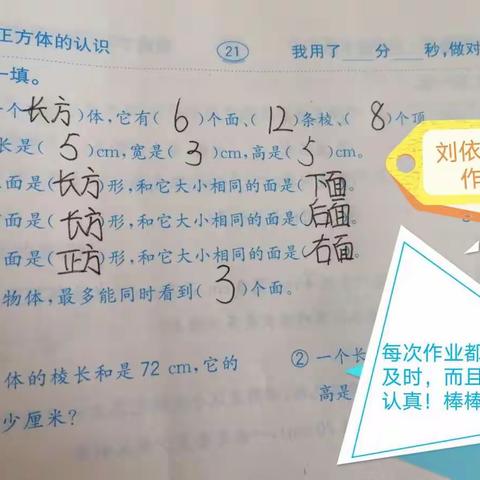 正方体的认识 21 我用了___分___秒,做对
一填。
一个(长方)体,它有(6)个面、(12)条棱、(8)个顶
长是(5)cm,宽是(3)cm,高是(5)cm。
面是(长方)形,和它大小相同的面是(下面)。
面是(长方)形,和它大小相同的面是(后面)。
面是(正方)形,和它大小相同的面是(右面)。
物体,最多能同时看到(3)个面。
体的棱长和是72 cm,它的
少厘米?
② 一个长
高是
刘依
作
每次作业都
及时,而且
认真!棒棒